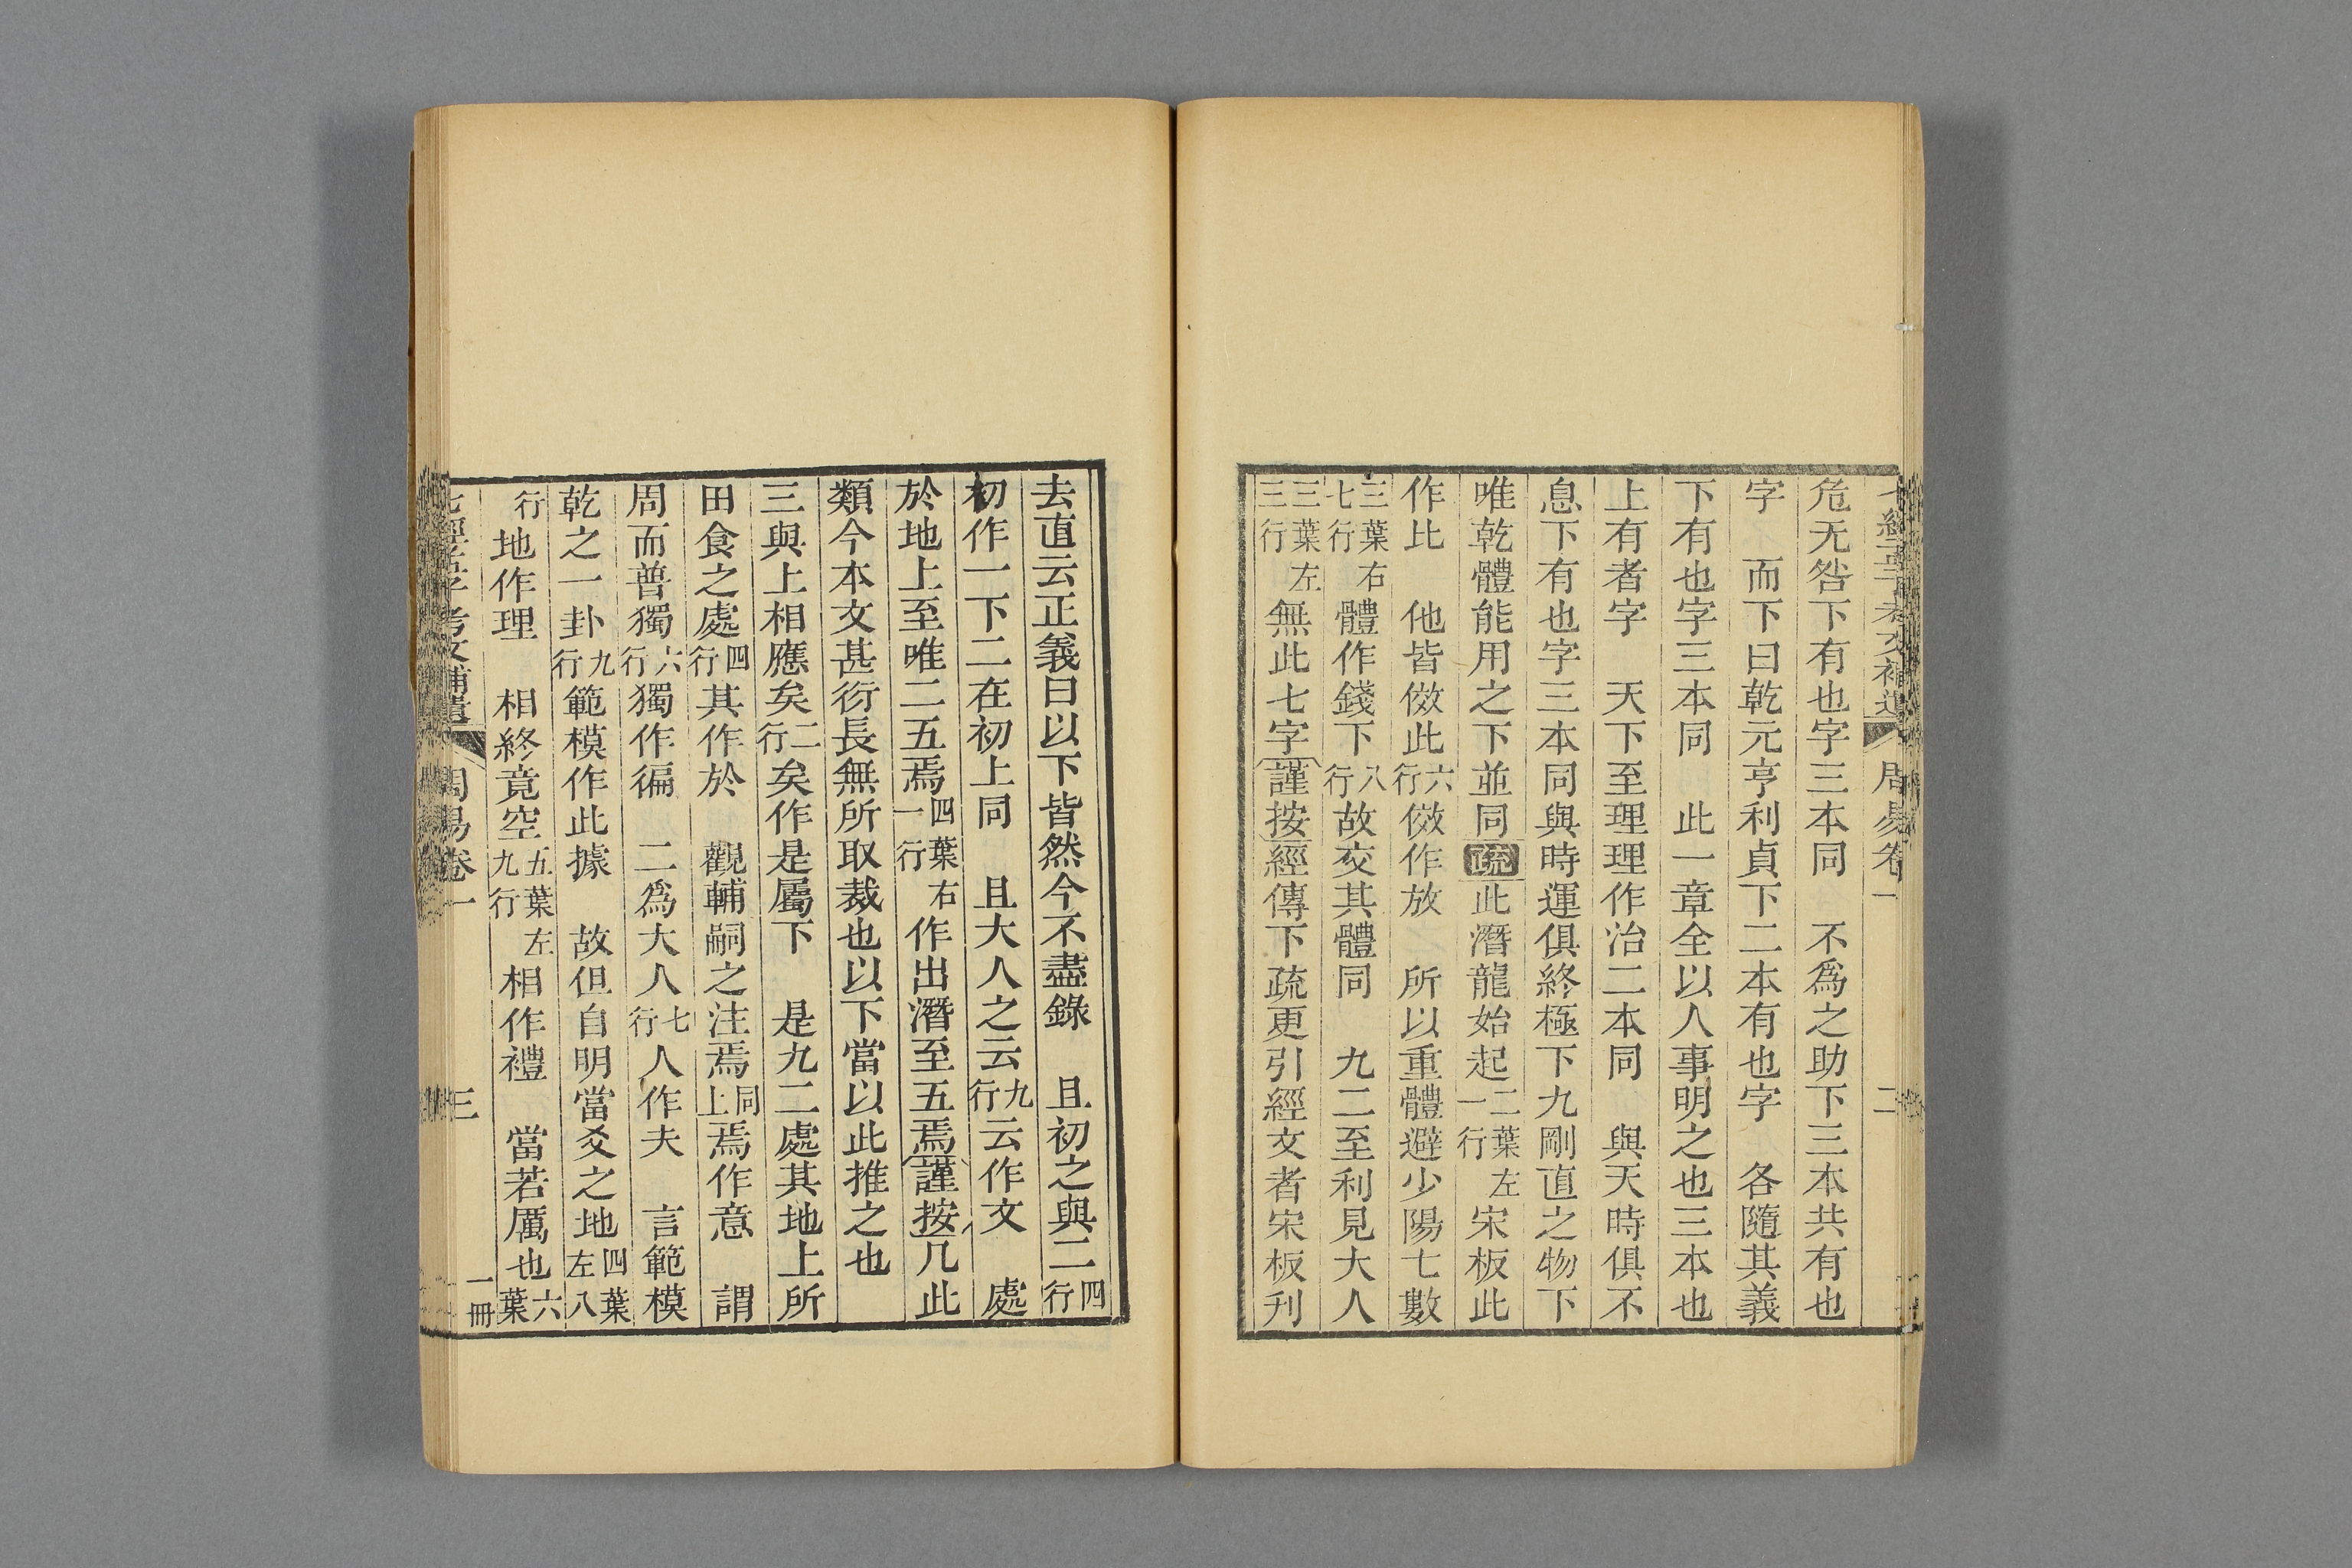 七經孟子考文補遺 周易卷一 二
危无咎下有也字三本同 不爲之助下三本共有也
字 而下曰乾元亨利貞下二本有也字 各隨其義
下有也字三本同 此一章全以人事明之也三本也
上有者字 天下至理理作治二本同 與天時俱不
息下有也字三本同與時運俱終極下九剛直之物下
唯乾體能用之下並同疏此潛龍始起二葉左一行宋板此
作比 他皆倣此六行倣作放 所以重體避少陽七數
三葉右七行體作錢下八行故交其體同 九二至利見大人
三葉左三行無此七字謹按經傳下疏更引經文者宋板刋
去直云正義曰以下皆然今不盡錄 且初之與二四行
初作一下二在初上同 且大人之云九行云作文 處
於地上至唯二五焉四葉右一行作出潛至五焉謹按凡此
類今本文甚衍長無所取裁也以下當以此推之也
三與上相應矣二行矣作是屬下 是九二處其地上所
田食之處四行其作於 觀輔嗣之注焉同上焉作意 謂
周而普獨六行獨作徧 二爲大人七行人作夫 言範模
乾之一卦九行範模作此據 故但自明當爻之地四葉左八
行地作理 相終竟空五葉左九行相作禮 當若厲也六葉
七經孟子考文補遺 周易卷一 三 一冊